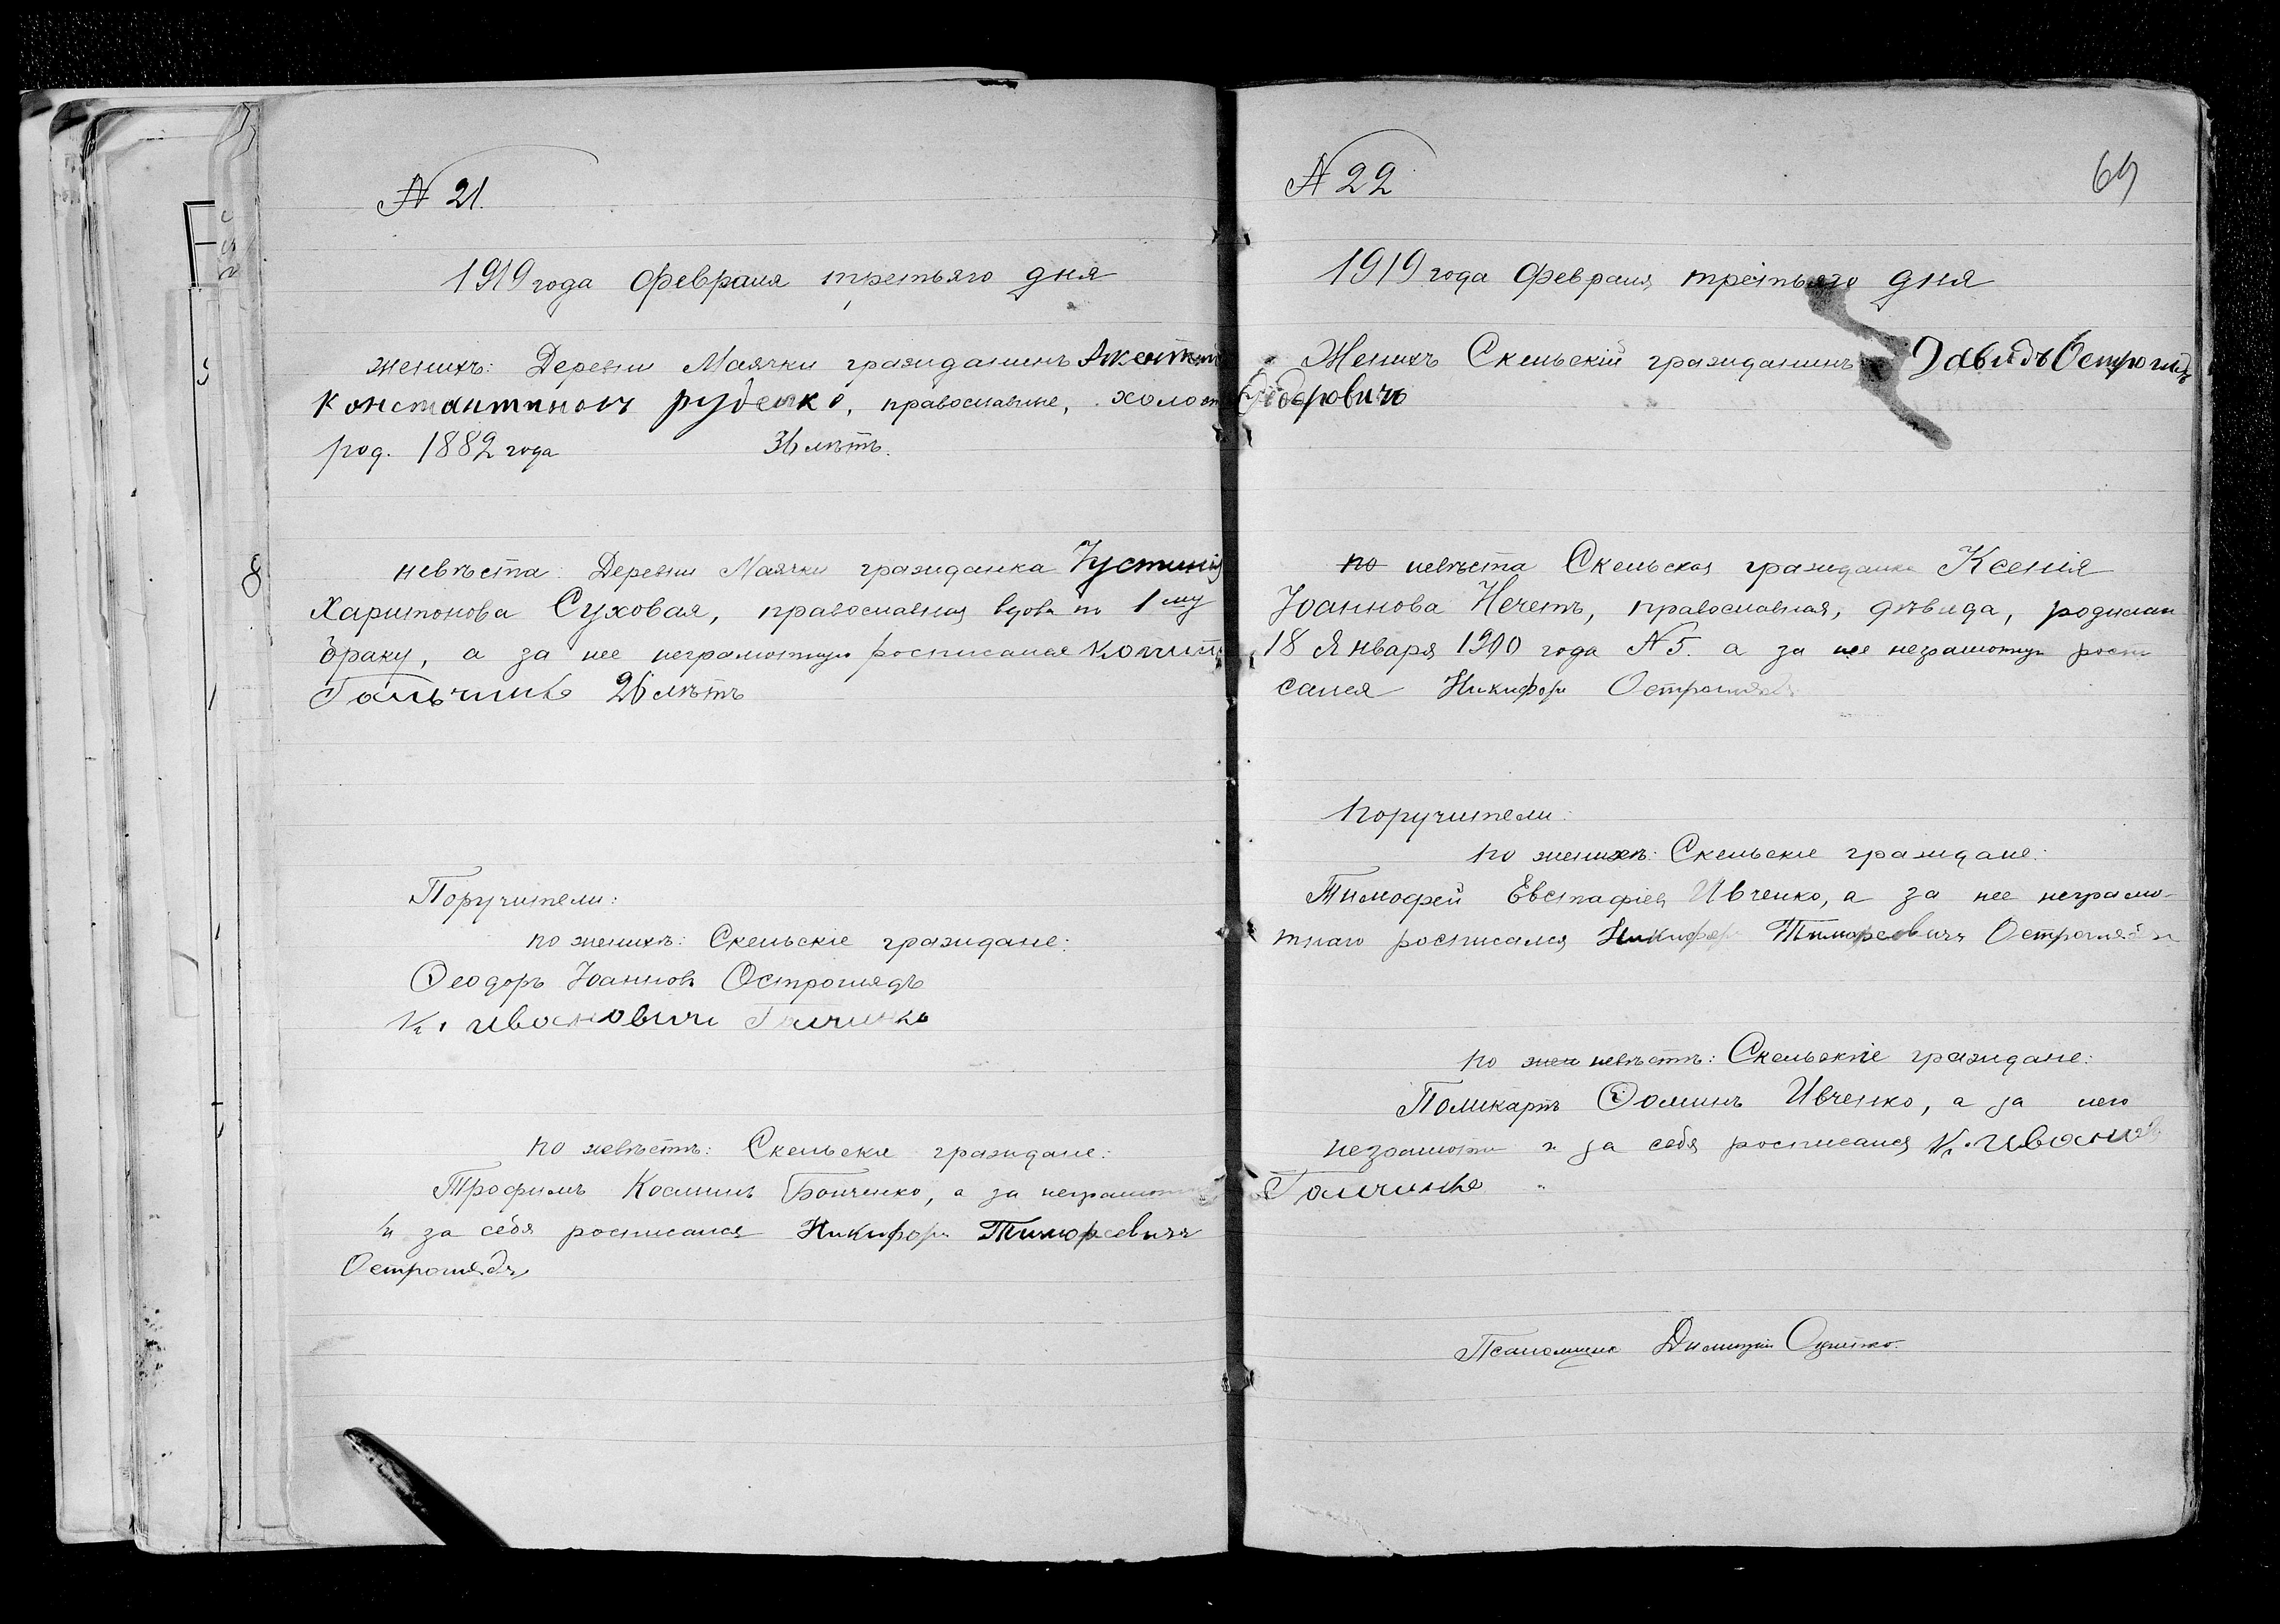 № 21.
1919 года Февраля третьяго дня
женихъ: Деревни Маячки гражданинъ
Константинов руденко, православные, холост
род. 1882 года 36 лѣтъ.
невѣста: Деревни Маячки гражданка Іустинія
Харитонова Суховая, православная вдова по 1му
браку, а за нее неграмотную росписался
Гальченко 26 лѣтъ
Поручители:
по женихѣ: Скельскіе граждане:
Ѳеодоръ Іоаннов Остроглядъ
К. Иванович
по невѣстѣ: Скельскіе граждане:
Трофимъ Козминъ, а за неграмотн
и за себя росписался Никифоръ Тимофеевичъ
Остроглядъ
№ 22
69
1919 года Февраля третьяго дня
Женихъ Скельскій гражданинъ Давидъ Остроглядъ
Федоровичъ
по невѣста Скельская гражданка Ксенія
Іоаннова Нечетъ, православная, дѣвица, родилась
18 Января 1900 года № 5. а за нее неграмотную роспи
сался Никифоръ Остроглядъ
Поручители:
по женихѣ: Скельскіе граждане:
Тимофей Евстафіев Ивченко, а за нее неграмо-
тнаго росписался Никифоръ Тимофеевичъ Остроглядъ
по жен невѣстѣ: Скельскіе граждане:
Поликарпъ Ѳоминъ Ивченко, а за него
неграмотн и за себя росписался К. Иванов
Галченко
Псаломщик Димитрій